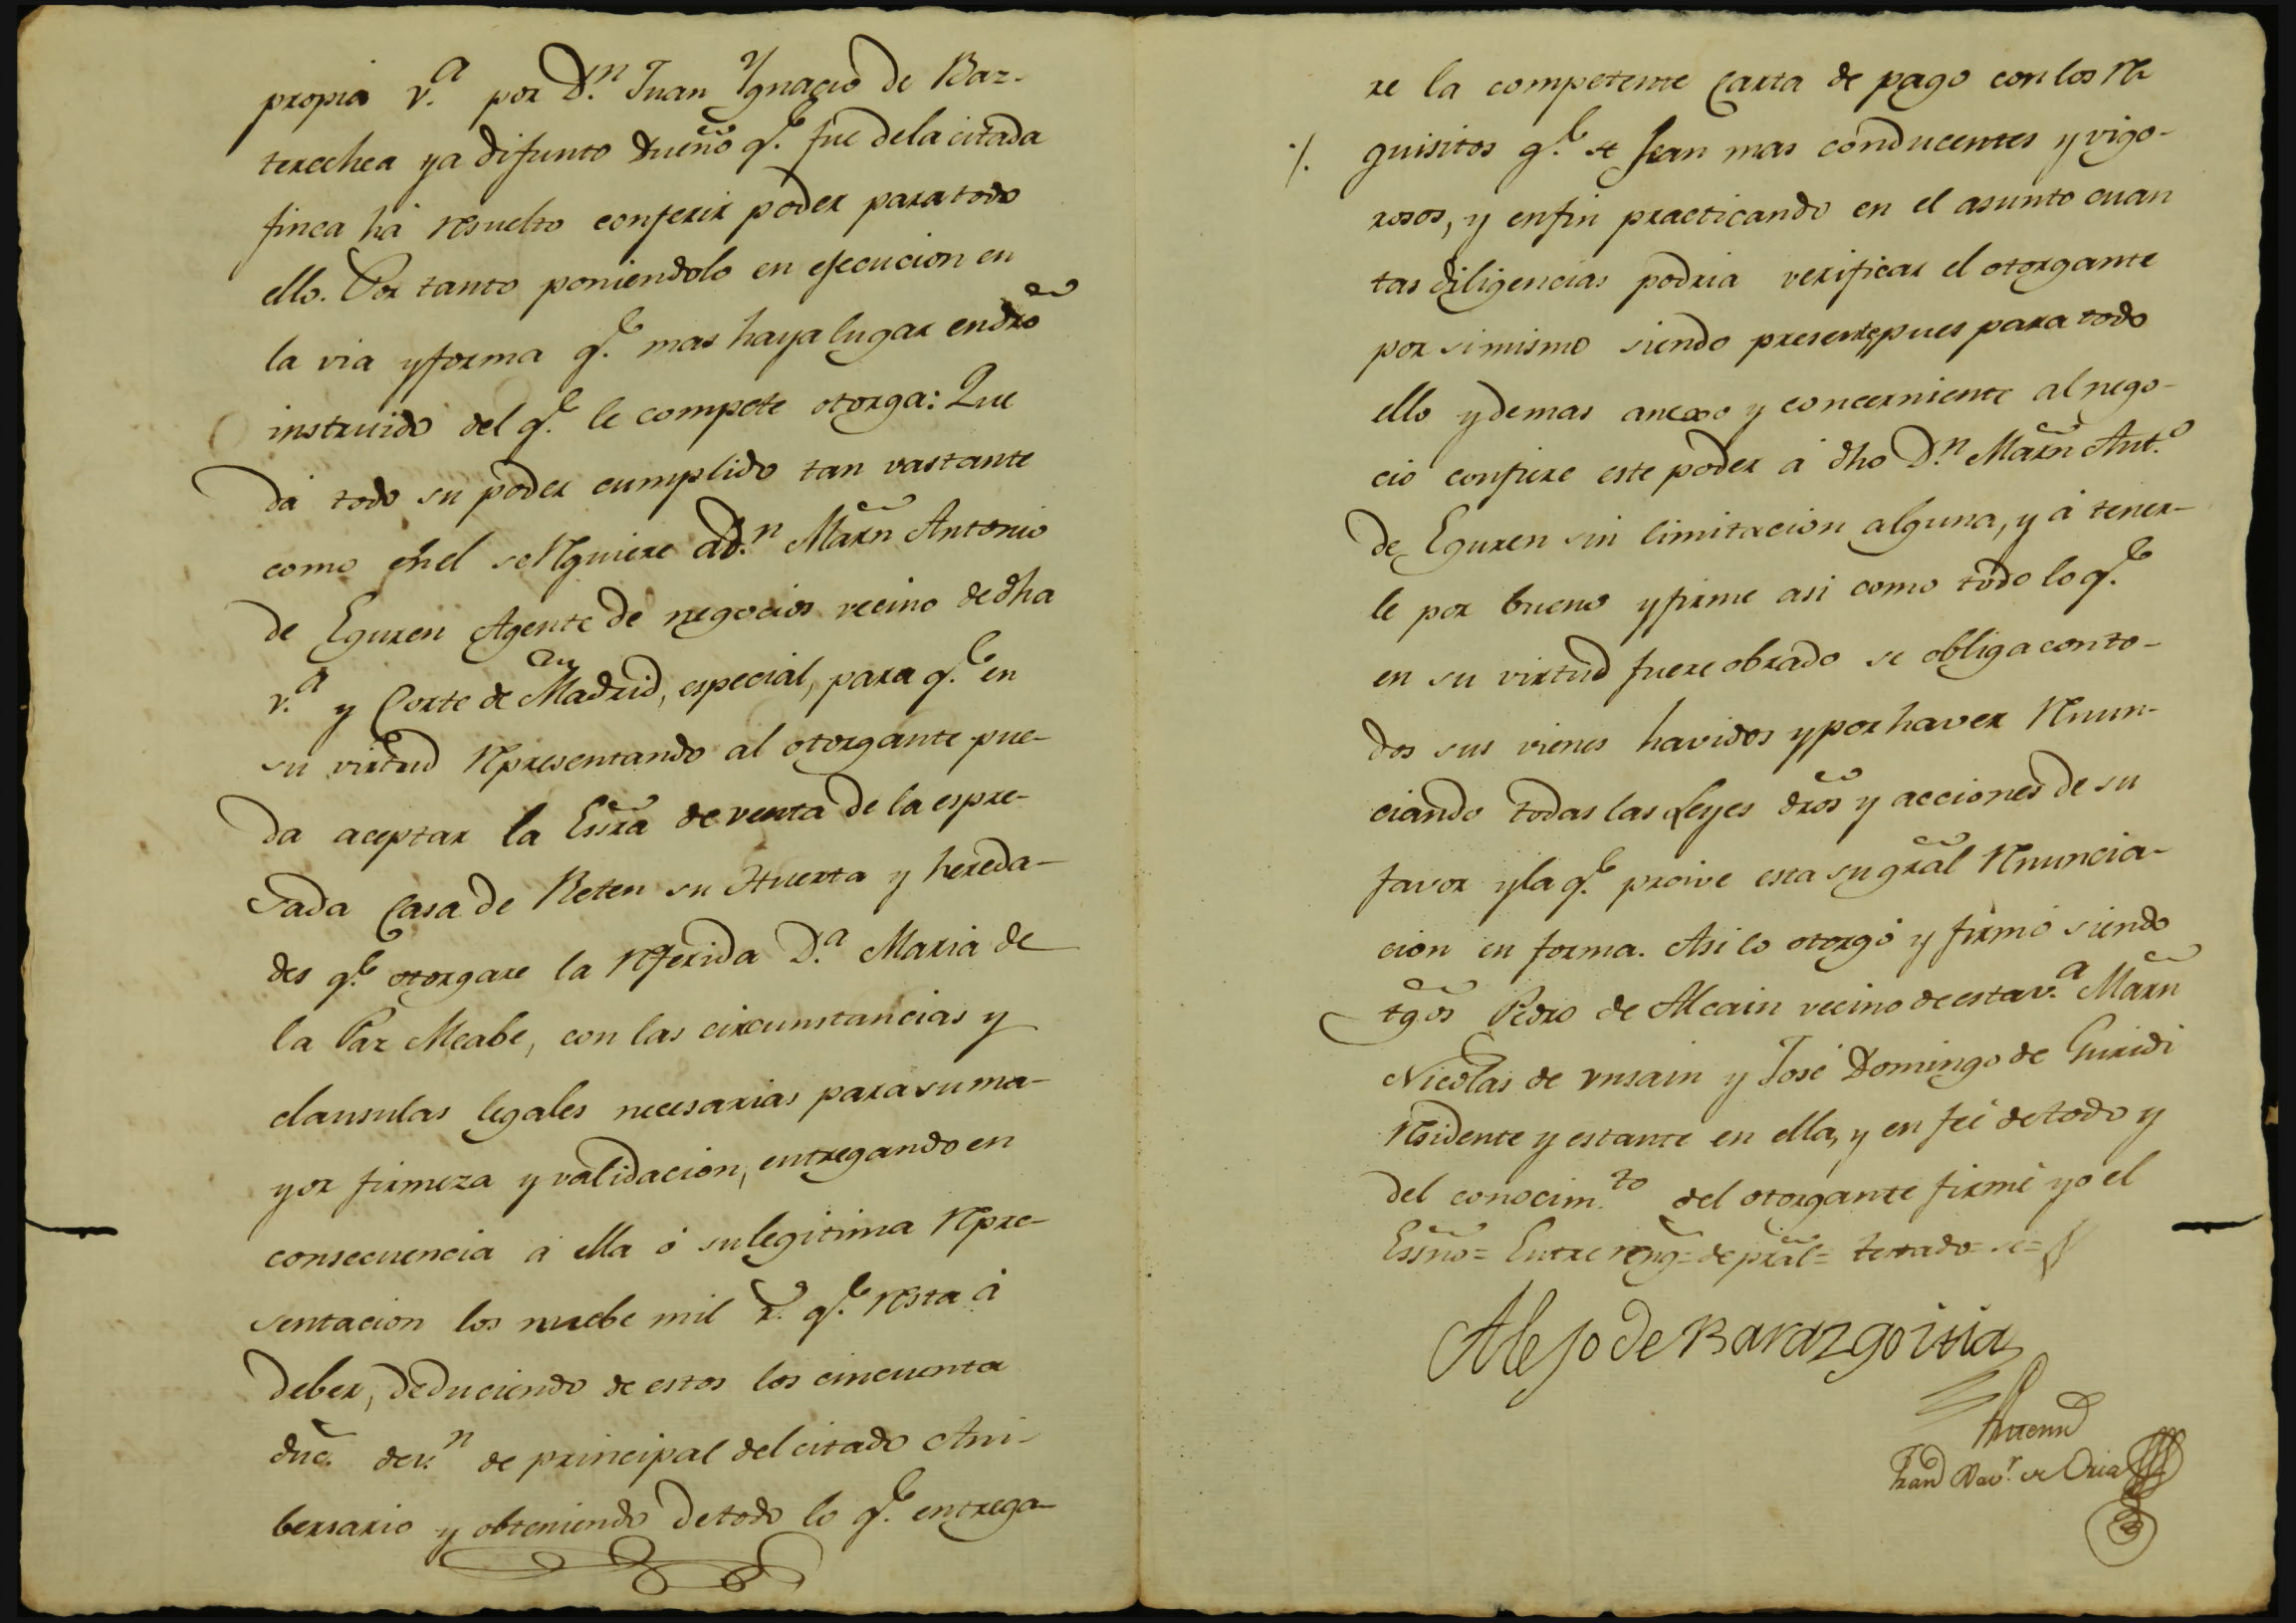 propia v.ª por D.n Juan Ygnacio de Baz-
terechea ya difunto Dueño q.e fue dela citada
finca há resuelto conferir poder para todo
ello. Por tanto poniendolo en ejecucion en
la via y forma q.e mas haya lugar en dro
instruido del q.e le compete otorga: Que
dá todo su poder cumplido tan vastante
como en el se requiere a D.n Marn Antonio
de Eguren Agente de negocios vecino de dha
v.ª y Corte de Madrid, especial, para q.e en
su virtud representando al otorgante pue-
da aceptar la Essra de venta de la espre-
sada Casa de Reten su Huerta y hereda-
des q.e otorgare la referida D.ª Maria de
la Paz Meabe, con las circunstancias y
clausulas legales necesarias para su ma-
yor firmeza y validacion, entregando en
consecuencia á ella ó su legitima repre-
sentacion los nuebe mil r.s q.e resta á
deber, deduciendo de estos los cincuenta
duc. de v.n de principal del citado Ani-
bersario y obteniendo de todo lo q.e entrega-
re la competente Carta de pago con los re-
quisitos q.e se sean mas conducentes y vigo-
rosos, y enfin practicando en el asunto cuan
tas diligencias podria verificar el otorgante
por si mismo siendo presente, pues para todo
ello y demas anexo y concerniente al nego-
cio confiere este poder á dho D.n Marn Ant.º
de Eguren sin limitacion alguna, y á tener-
le por bueno y firme asi como todo lo q.e
en su virtud fuere obrado se obliga con to-
dos sus vienes havidos y por haver renun-
ciando todas las Leyes dros y acciones de su
favor y la q.e proive esta su gral renuncia-
cion en forma. Asi lo otorgó y firmó siendo
tgos Pedro de Alcain vecino de esta v.ª Marn
Nicolas de Unsain y José Domingo de Guridi
residente y estante en ella, y en feé de todo y
del conocim.to del otorgante firmé yo el
Essno= Entre reng= de pral= testado= se=
Alejo de Barazgoitia
Antemi
Fran Xav.r de Oria